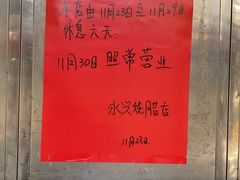 本店由11月23日至11月29日
休息六天.
11月30日 照常营业
永兴烧腊店
11月23日.